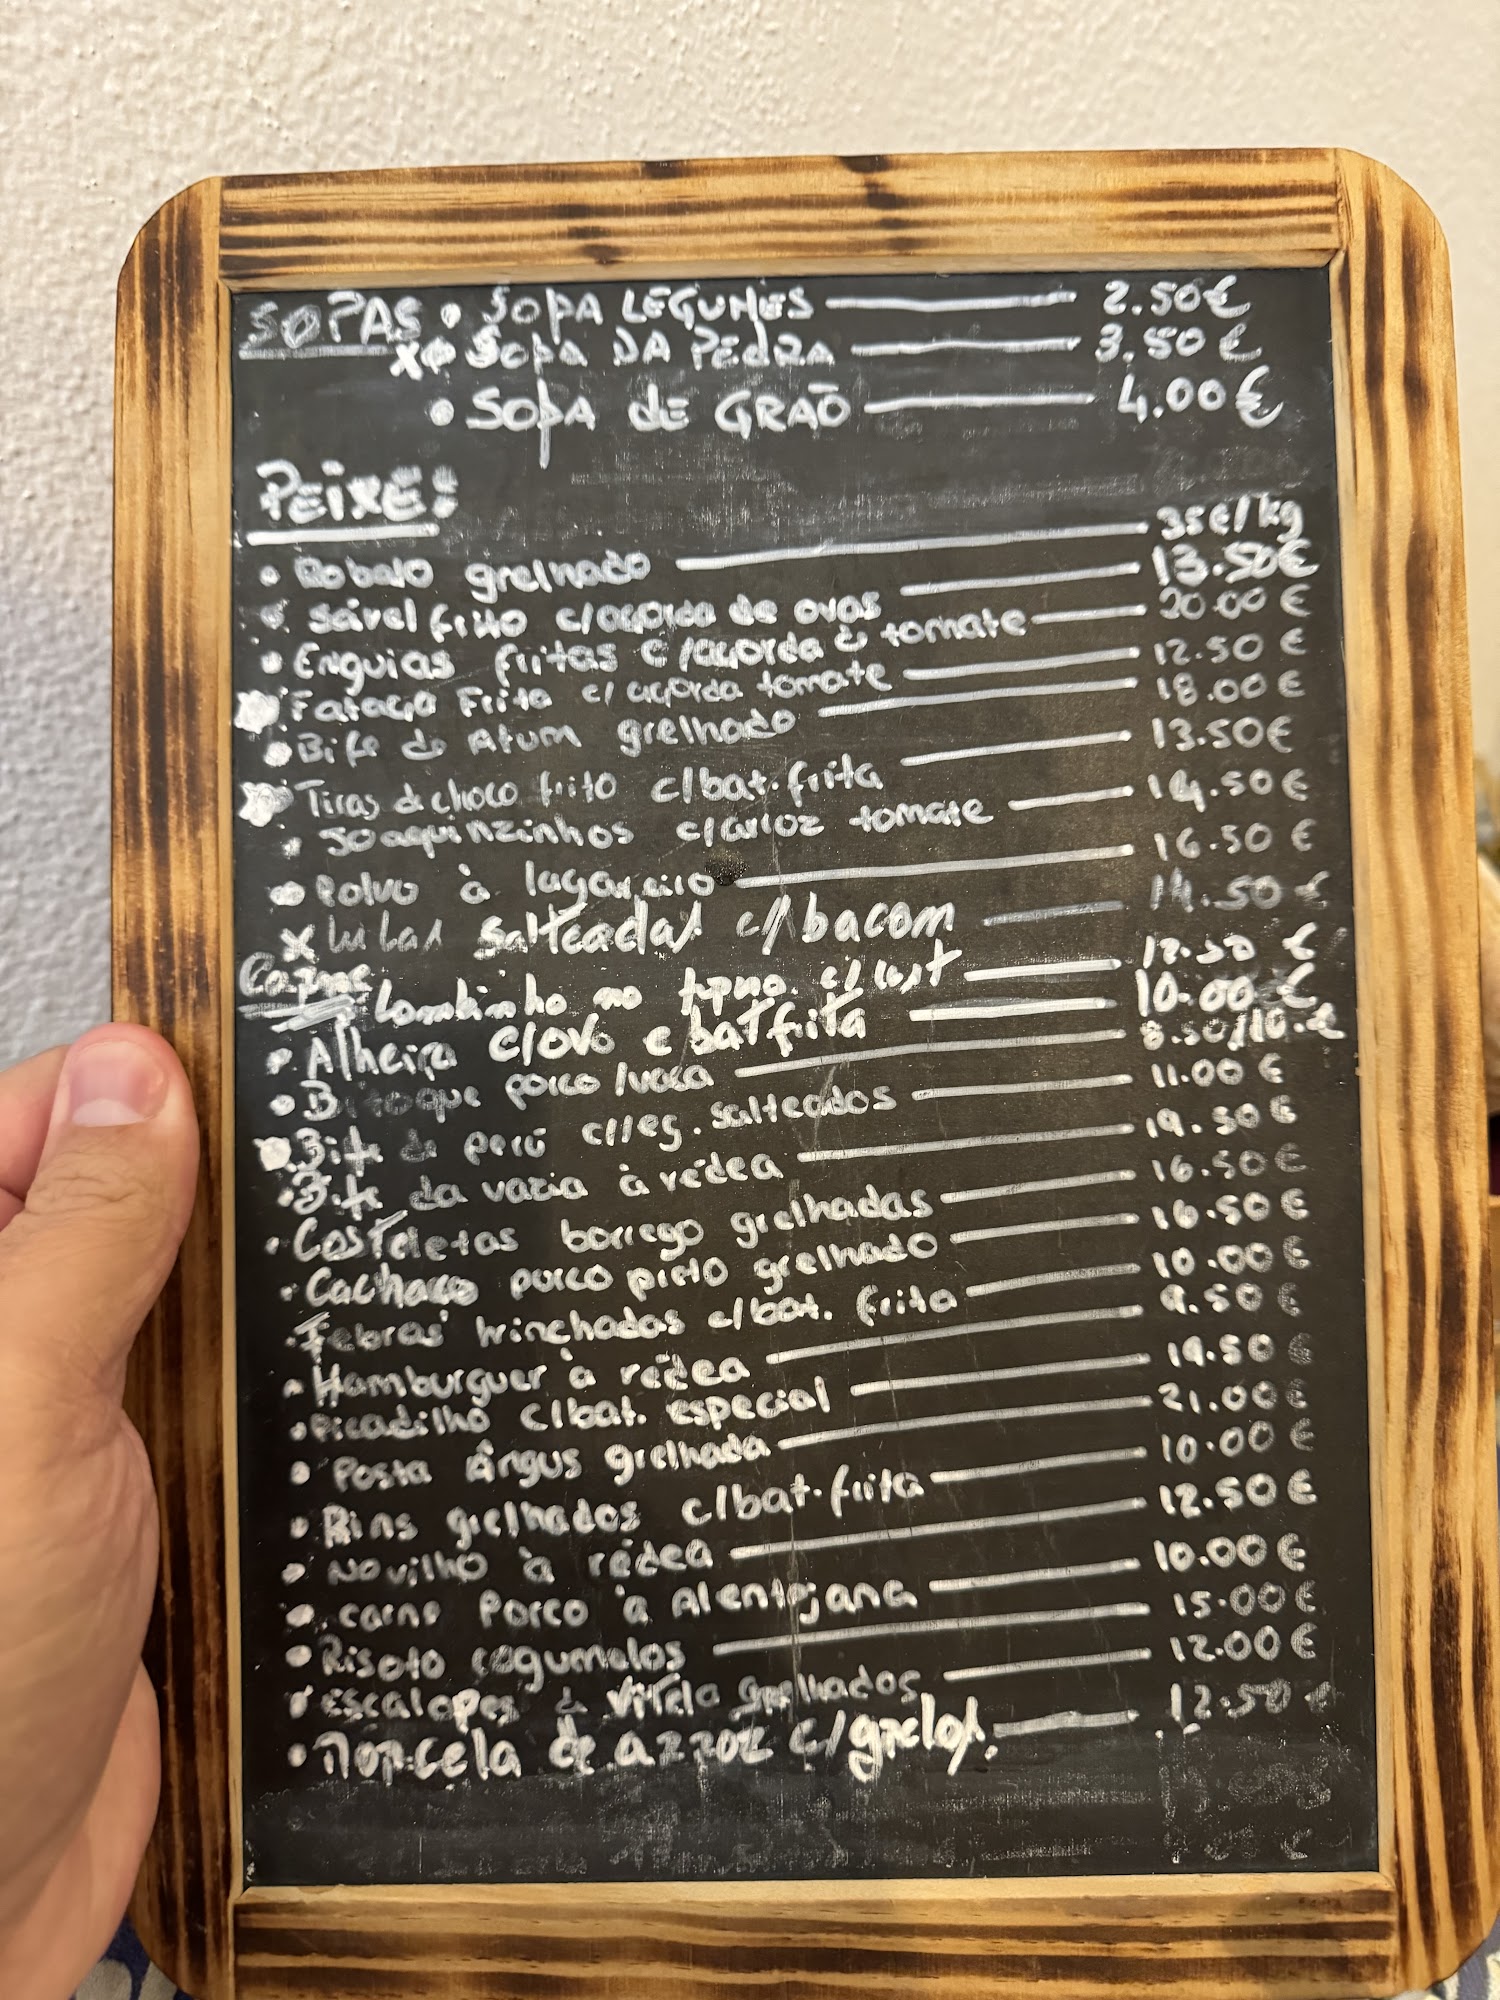 SOPAS • SOPA LEGUMES 2.50€
x• SOPA DA PEDRA 3.50€
• SOPA DE GRAÕ 4.00€
PEIXE:
• Robalo grelhado 35€/kg
• Sável frito c/açorda de ovas 13.50€
• Enguias fritas c/açorda d tomate 20.00€
Fataça Frita c/ açorda tomate 12.50€
• Bife de Atum grelhado 18.00€
Tiras d choco frito c/bat. frita 13.50€
• Joaquinzinhos c/arroz tomate 14.50€
• Polvo à lagareiro 16.50€
x Lulas salteadas c/bacom 14.50€
Carne Lombinho no forno c/cast 12.50€
• Alheira c/ovo e batfrita 10.00€
• Bitoque porco/vaca 8.50/10.€
• Bife de perú c/leg. salteados 11.00€
• Bife da vazia à rédea 19.50€
• Costeletas borrego grelhadas 16.50€
• Cachaco porco preto grelhado 16.50€
• Febras trinchadas c/bat. frita 10.00€
• Hamburguer à rédea 9.50€
• Picadilho c/bat. especial 19.50€
• Posta Ângus grelhada 21.00€
• Rins grelhados c/bat. frita 10.00€
• Novilho à rédea 12.50€
• carne Porco à Alentejana 10.00€
• Risoto cogumelos 15.00€
• Escalopes d Vitela grelhados 12.00€
• Morcela de arroz c/grelos. 12.50€